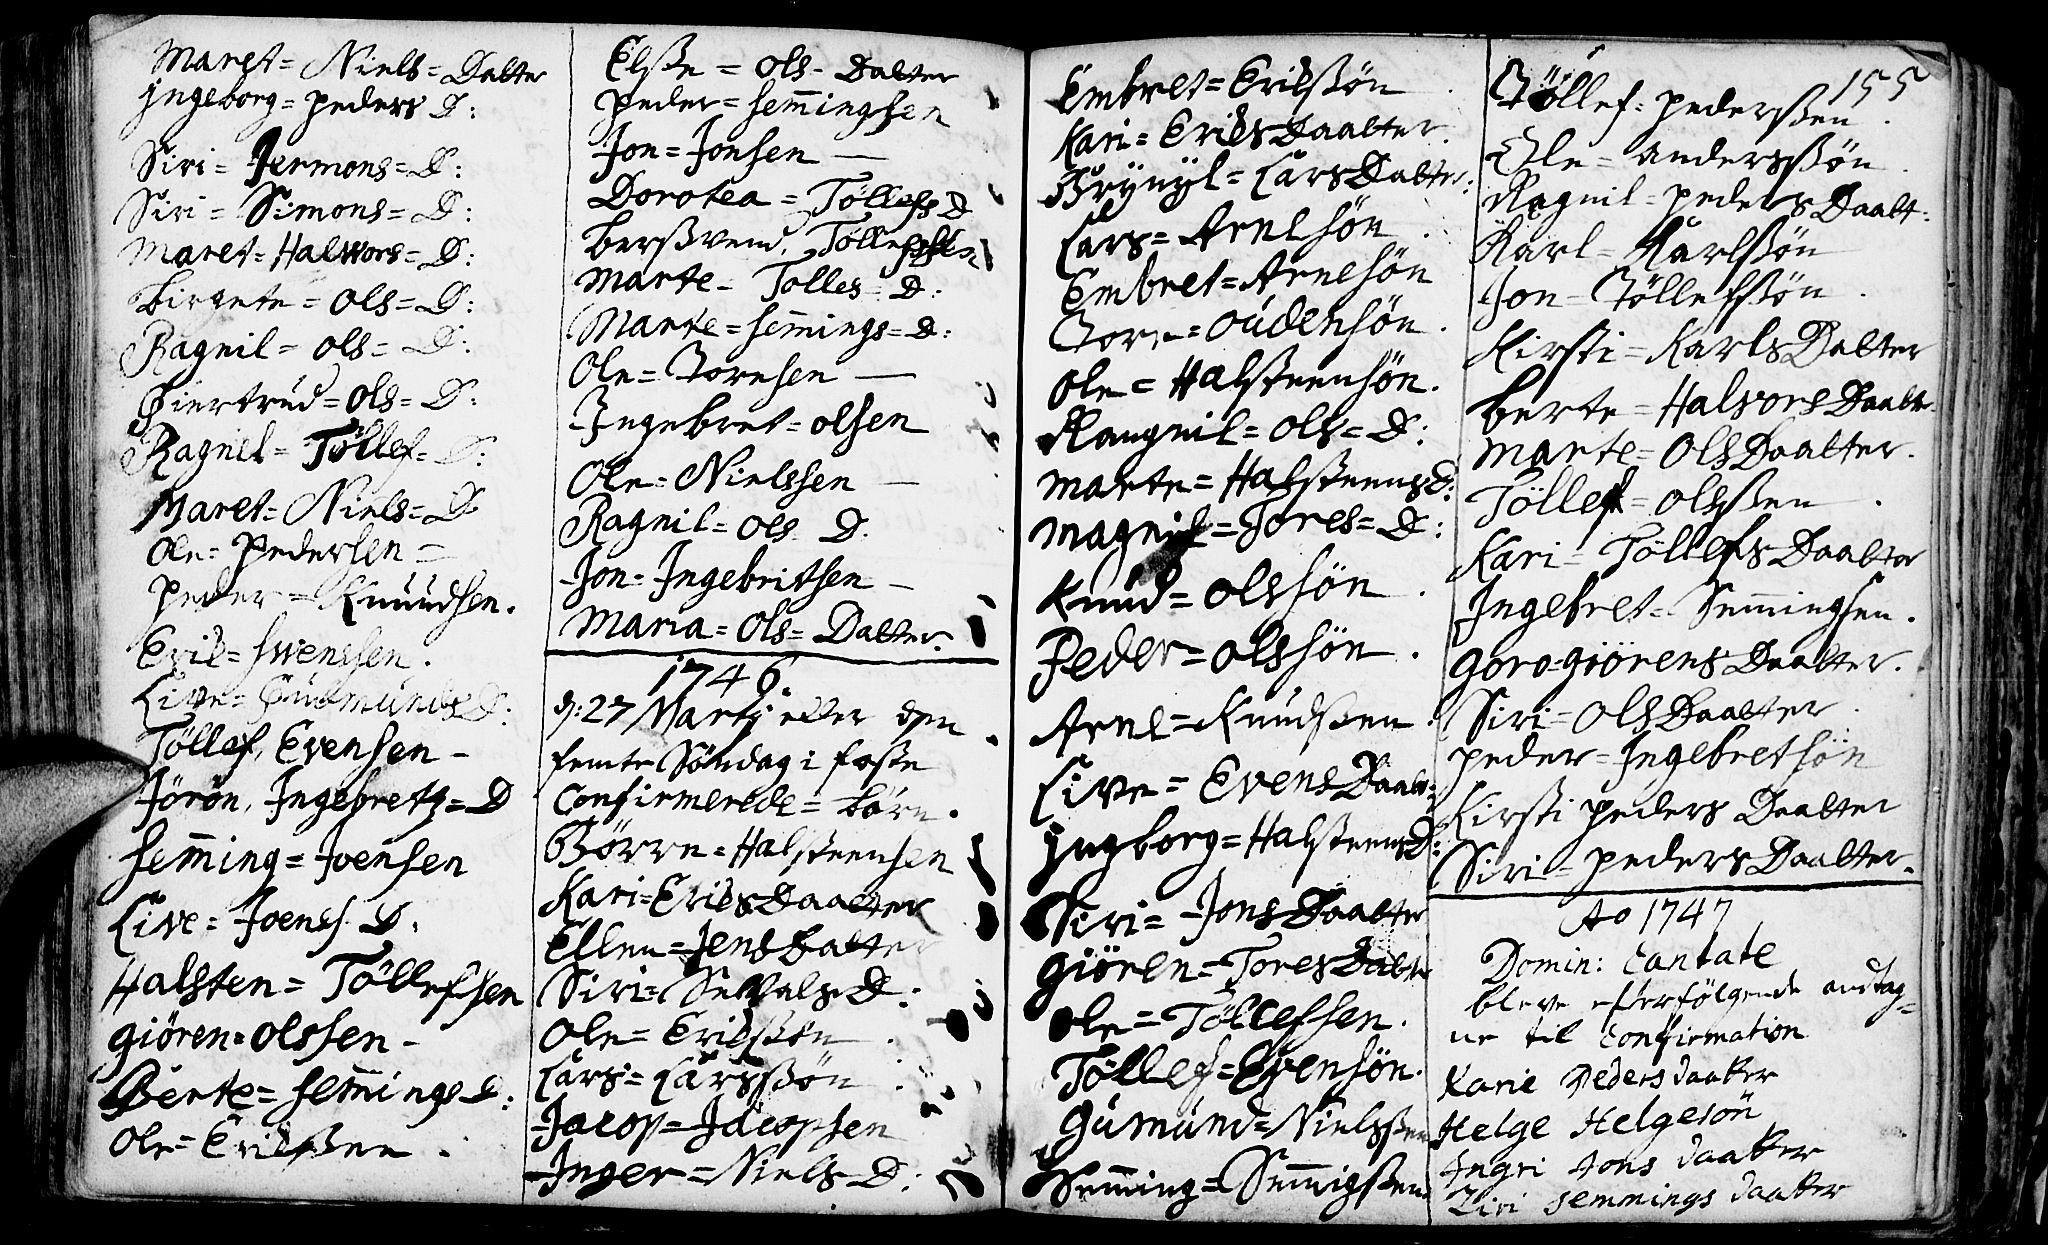 Maret = Niels = Datter
Jngeborg = peders D:
Siri = Jermons = D:
Siri = Simons = D:
Maret = Halvors = D:
Birgete = ols = D:
Ragnil = ols = D:
Giertrud = ols = D:
Ragnil = Töllef = D:
Maret = Niels = D
Ole = Pedersen =
Peder = Knuudsen.
Eril = Svensen.
Live = Gudmunds D:
Töllef, Evensen -
Jörön, Ingebretz = D
Hem̄ing = Joensen
Live = Joens. D.
Halsten = Töllefsen
Giören = olssen -
Berte = Hem̄ings D:
Ole = Erilssen.
Elsse = ols - Datter
Peder = Hem̄ingsen
Jon = Jonsen —
Dorotea = Töllefs D
Bersvend, Töllefssen
Marte - Tolles = D:
Marte = Hem̄ings = D:
Ole = Toresen —
Ingebret = olsen
Ole = Nielssen —
Ragnil = ols D.
Jon = Ingebritsen —
Maria = Ols = Datter.
1746.
d: 27 Martj eller den
femte Söndag i faste
Confirmerede = börn.
Börre = Halsteensen
Kari = Erils Daatter
Ellen = Jens Datter
Siri = Sevals D:
Ole = Erilssøn.
Lars = Larssøn.
Jacop = Jacopsen
Inger = Niels D:
Embret = Erilssøn.
Kari = Erils Daatter.
Brynyl = Lars Datter:
Lars = Arnesøn.
Embret = Arnesøn
Tore = oudensøn.
Ole = Halsteensøn.
Raugnil = ols = D:
Marte = Halsteens D:
Magnil = Tores = D:
Knud = olssøn.
Peder = olssøn.
Arne = Knudssen.
Live = Evens Daat:
Jngborg = Halsteens D:
Siri = Jons Daatter
Giören = Tores Datter
Ole = Töllefsen.
Töllef = Evensøn.
Gumund = Nielssen
Sem̄ing = Sem̄igssen
155
Töllef = pederssen.
Ole = anderssøn.
Ragnil = peders Daatt:
Karl = Karlssøn
Jon = Töllefssøn.
Kirsti = Karls Datter
Berte = Halvors Daatter
Marte = Ols Daatter.
Töllef = olssen.
Kari = Töllefs Daatter
Ingebret = Sem̄ingsen.
Goro = giörens Daatter.
Siri = Ols Daatter.
Peder = Ingebretsøn
Kirsti peders Daatter
Siri = peders Daatter.
Ao 1747
Domin: Cantate
bleve efterfölgende andtag=
ne til Confirmation
Karie Peders daatter
Helge Helgesön
Ingri Jons daatter
Siri Semmings daatter